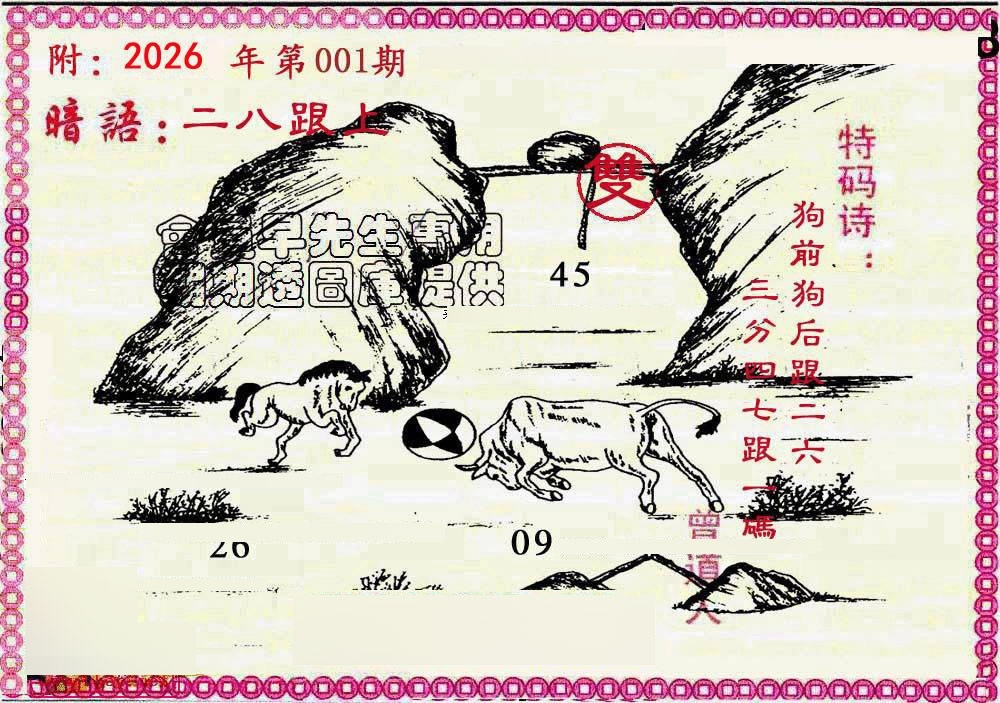 附：2026 年第001期
暗語：二八跟上
雙
早先生專用
期透圖庫提供
45
特码诗：
狗前狗后跟二六
三分四七跟一碼
26
09
曾道人